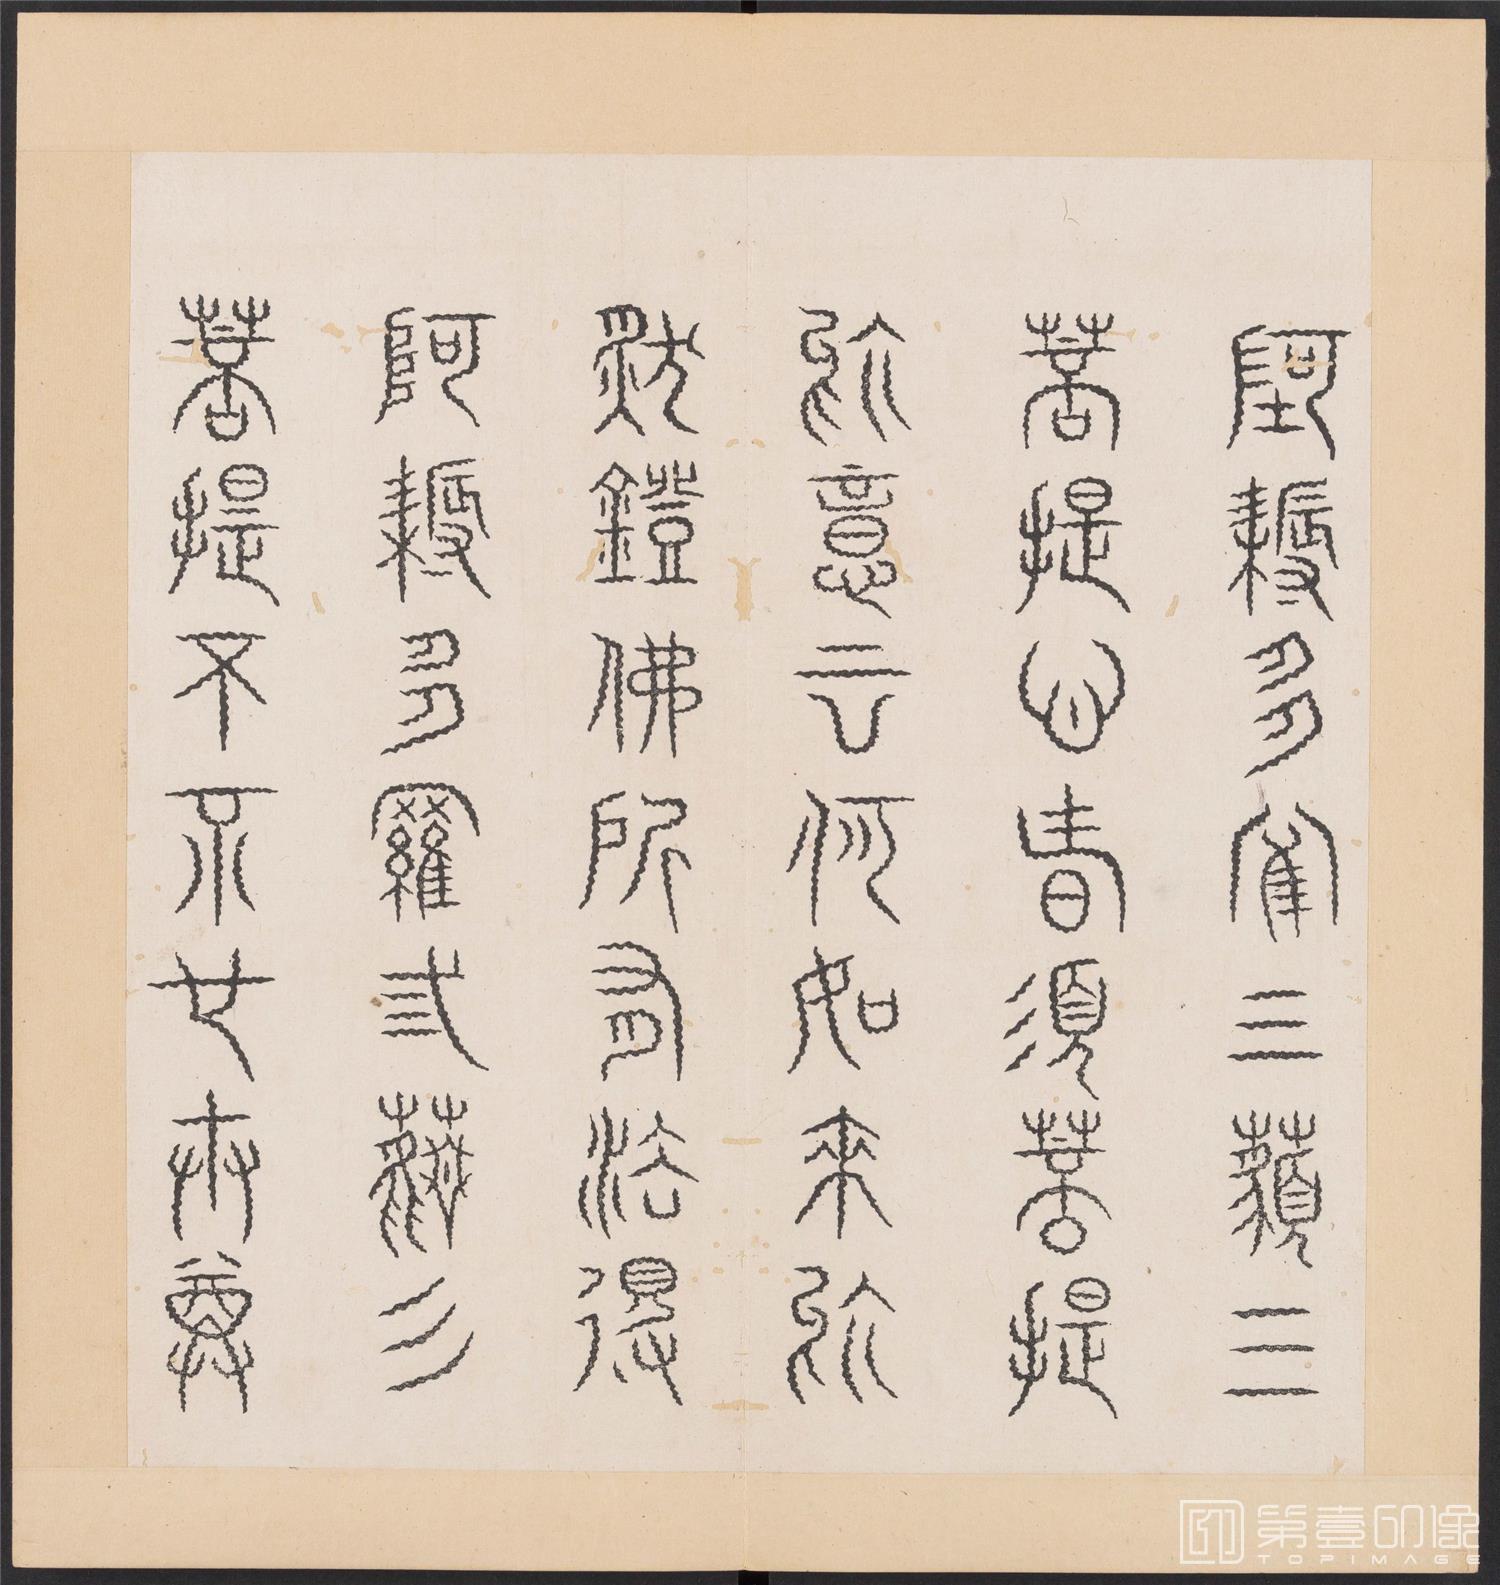 阿耨多羅三藐三
菩提心者須菩提
於意云何如來於
然燈佛所有法得
阿耨多羅三藐三
菩提不不也世尊
第壹印像
TOPIMAGE